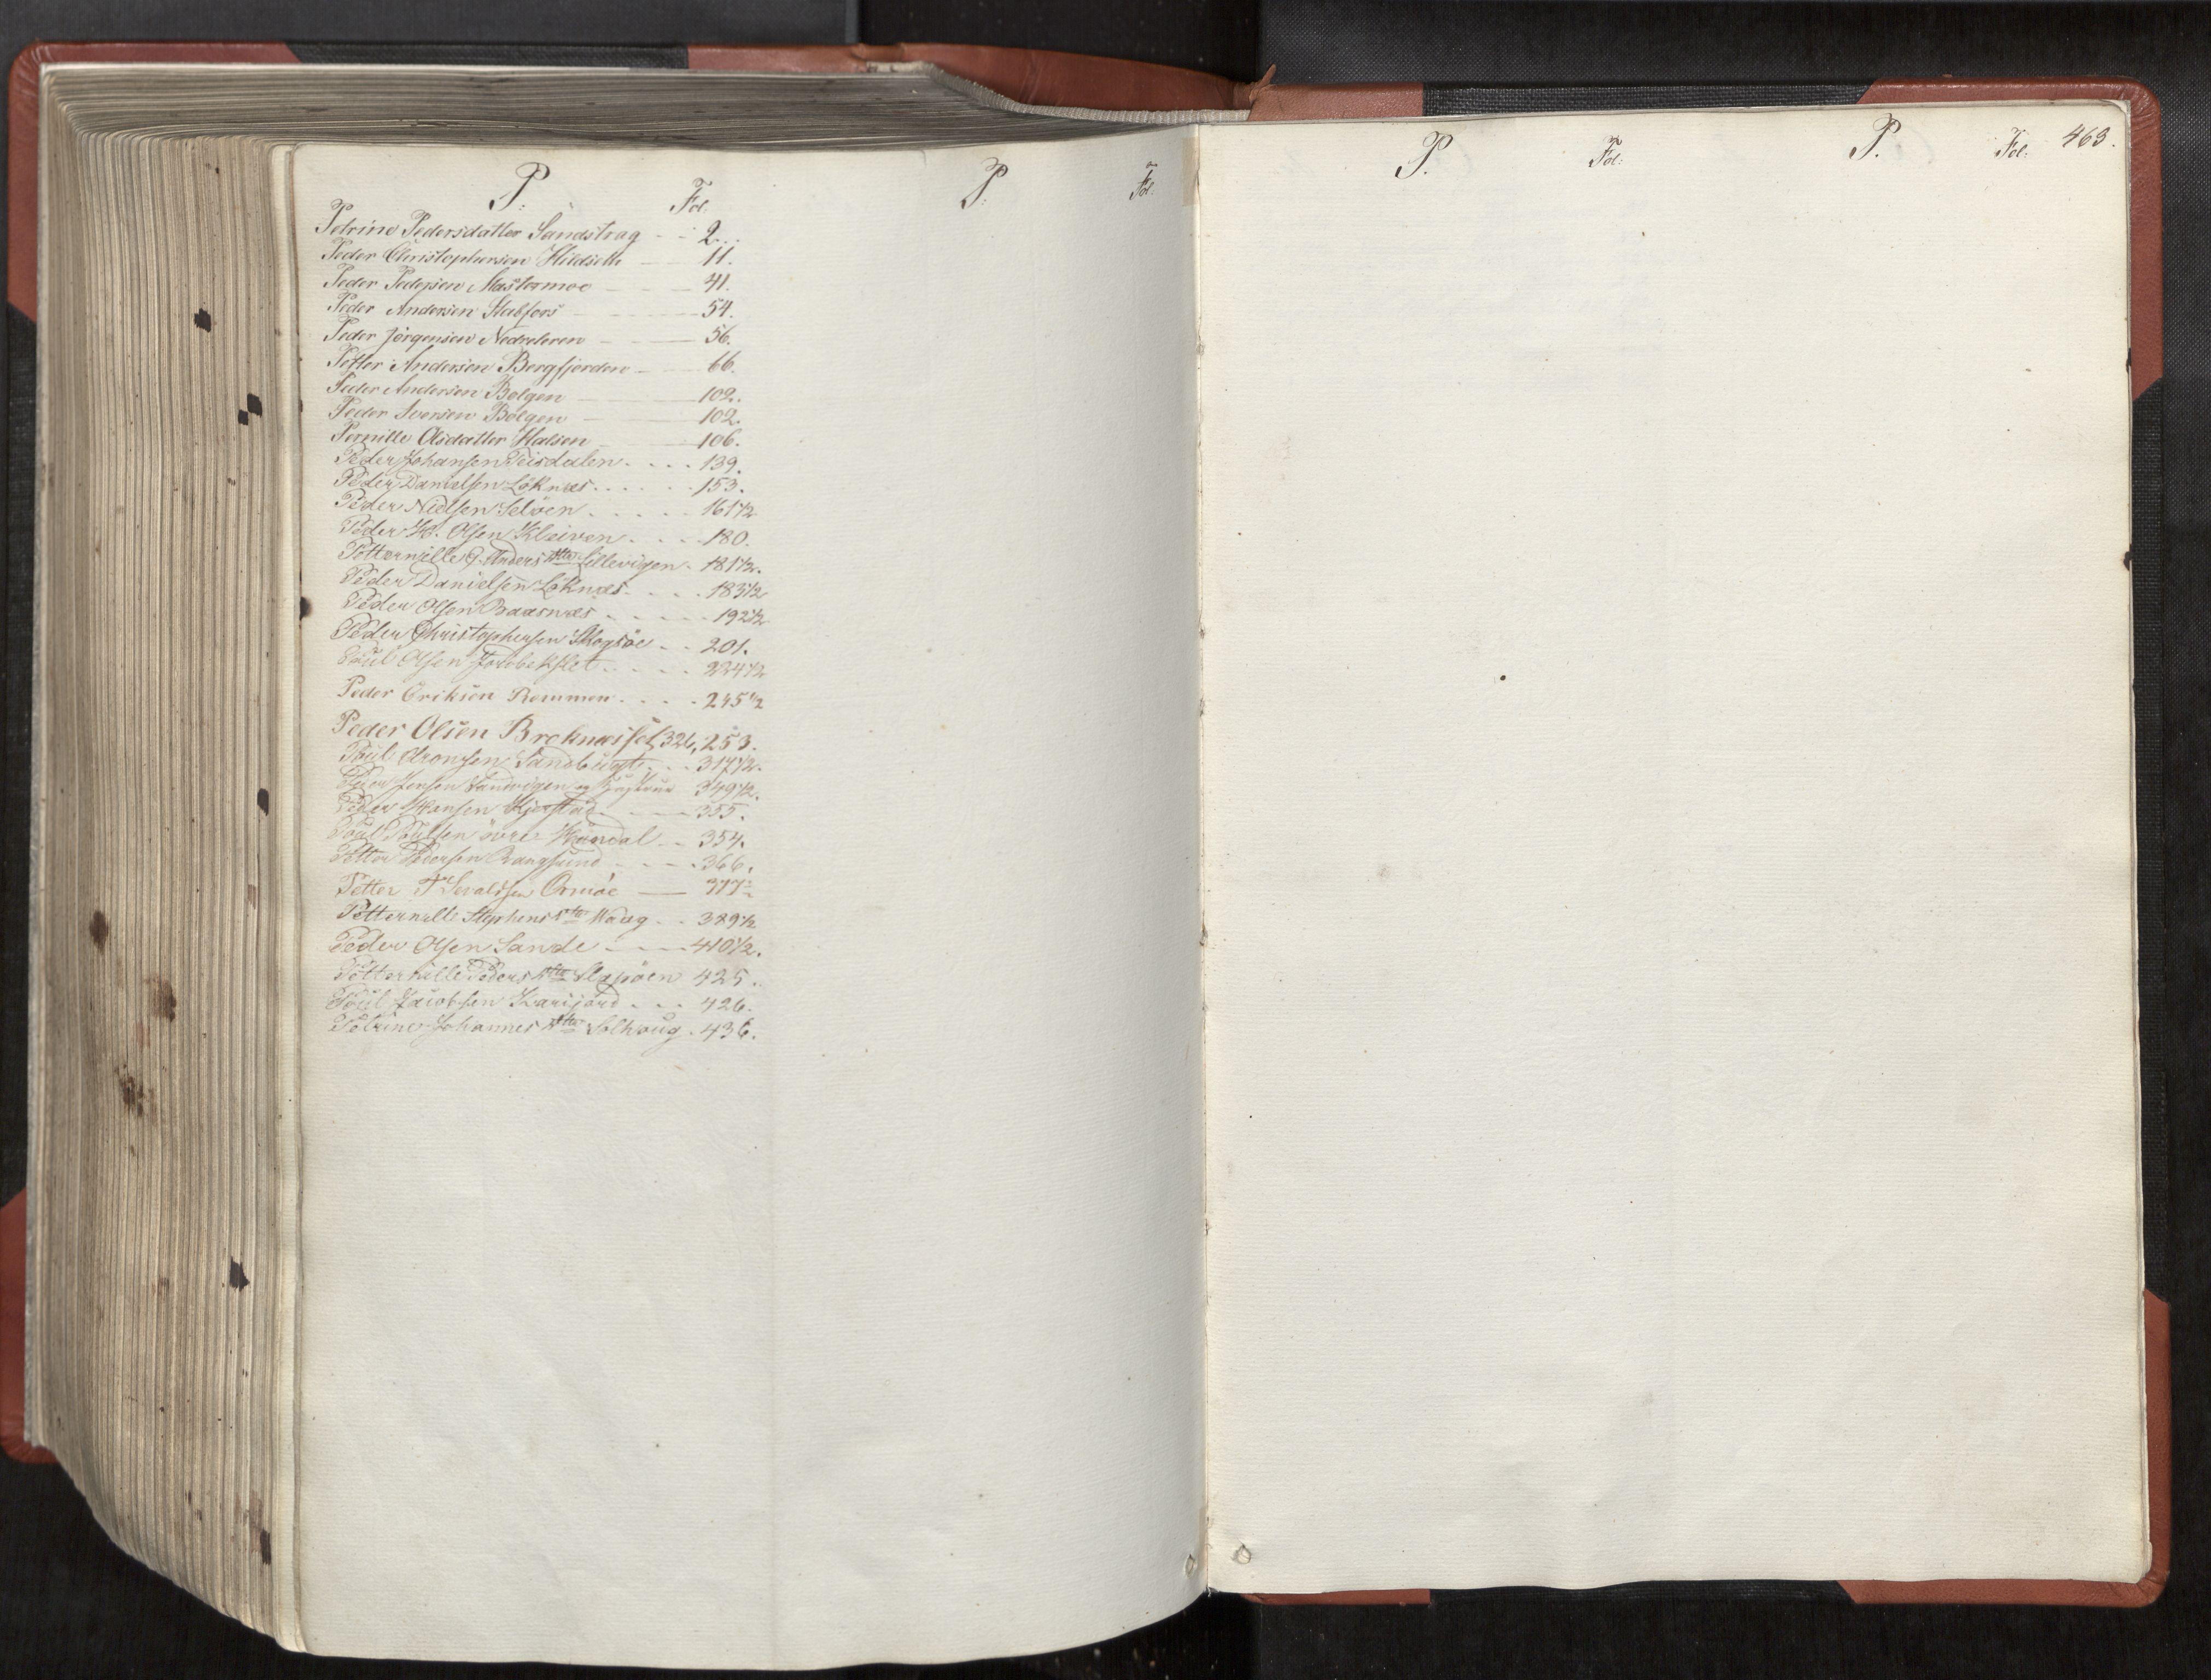 P: Fol:
Petrine Pedersdatter Sandstrag - - 2.
Peder Christophersen Hildseth — 11.
Peder Pedersen Mastermoe — 41.
Peder Andersen Stabfors — 54.
Peder Jørgensen Nedreleren — 56.
Petter Andersen Bergfjorden — 66.
Peder Andersen Bolgen — 102.
Peder Iversen Bolgen — 102.
Pernille Olsdatter Halsen — 106.
Peder Johansen Teisdalen . . . . 139.
Peder Danielsen Løknæs . . . . . 153.
Peder Nielsen Selöen . . . . . 161 1/2
Peder H. Olsen Kleiven . . . . 180.
Petternille Anders dtter Lillevigen . 181 1/2.
Peder Danielsen Løknæs . . . . 183 1/2
Peder Olsen Baasnæs . . . . . 192 1/2
Peder Christophersen Skogsöe . . 201.
Poul Olsen . . . . . 224 1/2
Peder Eriksen Remmen . . . . 245 1/2
Peder Olsen Breknæs fol 326, 253.
Poul Aronsen Sandbugt . . . 317 1/2.
Peder Jensen Sandvigen og Hustrue 349 1/2.
Peder Hansen Kjerstad — 355.
Poul Poulsen övre — 354.
Petter Pedersen Rangsund - - - - 366.
Petter Sevaldsen Ormöe — 377
Petternille Stephens dtr Waag . . 389 1/2
Peder Olsen Sande - - - 410 1/2.
Petternille Peders dtr Slapöen 425.
Poul Jacobsen . . . 426.
Petrine Johannes dtr Solhoug . 436.
P: Fol:
P. Fol:
P. Fol: 463.